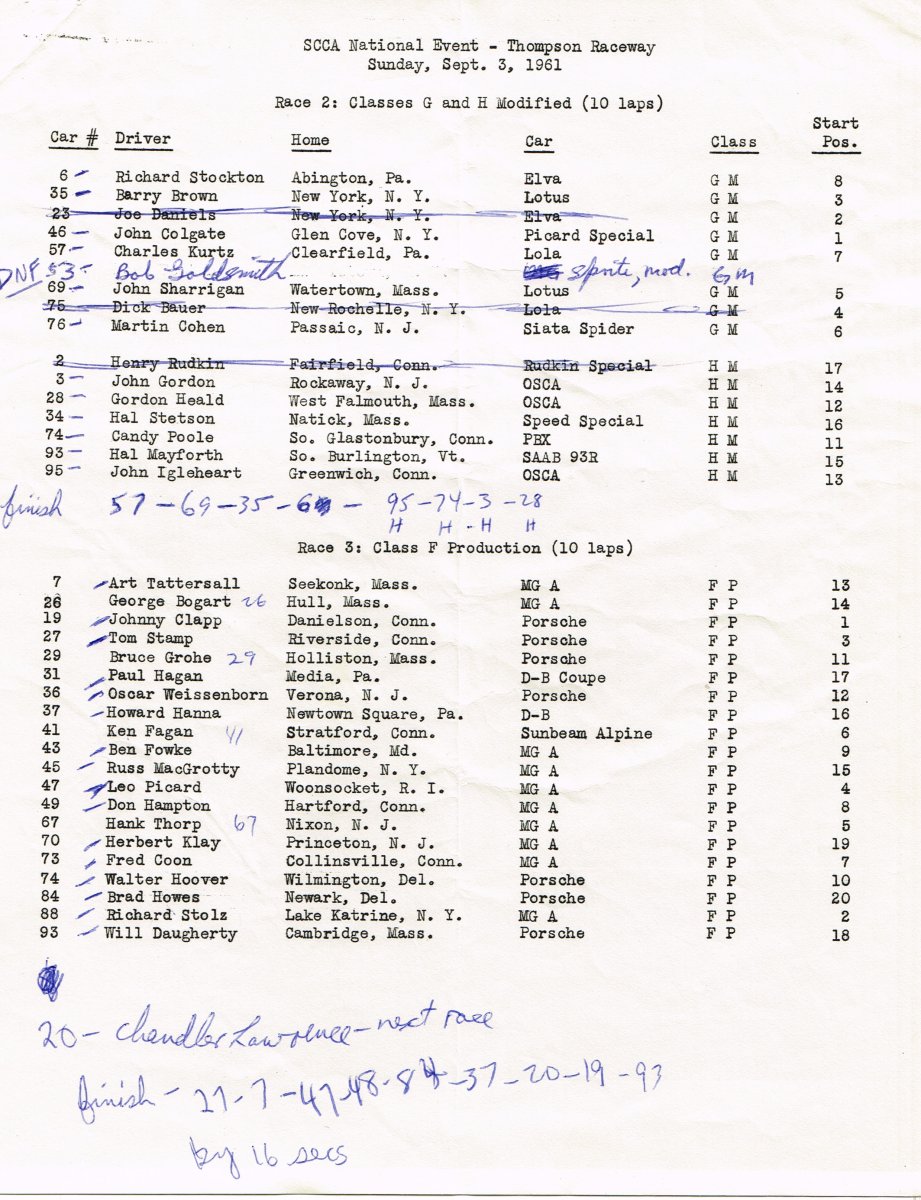 SCCA National Event - Thompson Raceway
Sunday, Sept. 3, 1961
Race 2: Classes G and H Modified (10 laps)
Start
Car # Driver Home Car Class Pos.
6 - Richard Stockton Abington, Pa. Elva G M 8
35 - Barry Brown New York, N. Y. Lotus G M 3
23 Joe Daniels New York, N. Y. Elva G M 2
46 - John Colgate Glen Cove, N. Y. Picard Special G M 1
57 - Charles Kurtz Clearfield, Pa. Lola G M 7
DNF 53 - Bob Goldsmith Sprite, mod. GM
69 - John Sharrigan Watertown, Mass. Lotus G M 5
75 Dick Bauer New Rochelle, N. Y. Lola G M 4
76 - Martin Cohen Passaic, N. J. Siata Spider G M 6
2 Henry Rudkin Fairfield, Conn. Rudkin Special H M 17
3 - John Gordon Rockaway, N. J. OSCA H M 14
28 - Gordon Heald West Falmouth, Mass. OSCA H M 12
34 - Hal Stetson Natick, Mass. Speed Special H M 16
74 - Candy Poole So. Glastonbury, Conn. PBX H M 11
93 - Hal Mayforth So. Burlington, Vt. SAAB 93R H M 15
95 - John Igleheart Greenwich, Conn. OSCA H M 13
finish 57 - 69 - 35 - 6 - 95 - 74 - 3 - 28
H H - H H
Race 3: Class F Production (10 laps)
7 Art Tattersall Seekonk, Mass. MG A F P 13
26 George Bogart 26 Hull, Mass. MG A F P 14
19 Johnny Clapp Danielson, Conn. Porsche F P 1
27 Tom Stamp Riverside, Conn. Porsche F P 3
29 Bruce Grohe 29 Holliston, Mass. Porsche F P 11
31 Paul Hagan Media, Pa. D-B Coupe F P 17
36 Oscar Weissenborn Verona, N. J. Porsche F P 12
37 Howard Hanna Newtown Square, Pa. D-B F P 16
41 Ken Fagan 41 Stratford, Conn. Sunbeam Alpine F P 6
43 Ben Fowke Baltimore, Md. MG A F P 9
45 Russ MacGrotty Plandome, N. Y. MG A F P 15
47 Leo Picard Woonsocket, R. I. MG A F P 4
49 Don Hampton Hartford, Conn. MG A F P 8
67 Hank Thorp 67 Nixon, N. J. MG A F P 5
70 Herbert Klay Princeton, N. J. MG A F P 19
73 Fred Coon Collinsville, Conn. MG A F P 7
74 Walter Hoover Wilmington, Del. Porsche F P 10
84 Brad Howes Newark, Del. Porsche F P 20
88 Richard Stolz Lake Katrine, N. Y. MG A F P 2
93 Will Daugherty Cambridge, Mass. Porsche F P 18
20 - Chandler Lawrence - next race
finish - 27 - 7 - 47 - 48 - 84 - 37 - 20 - 19 - 93
by 16 secs